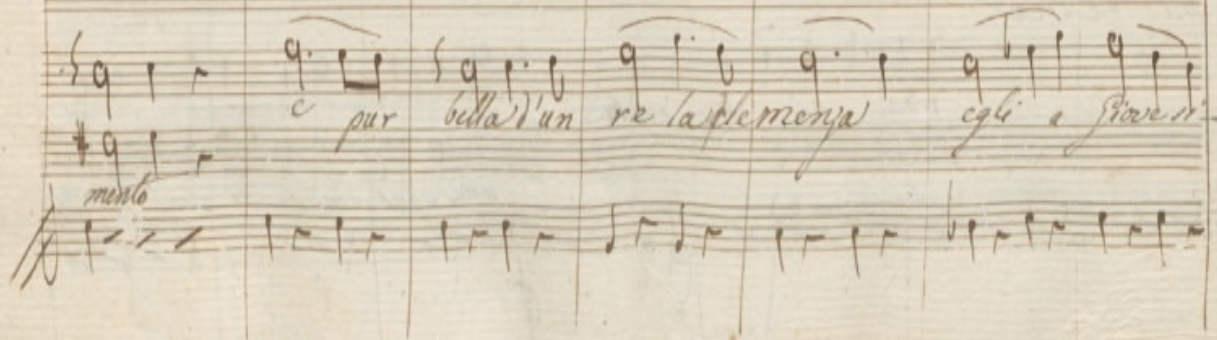 e pur bella d'un re la clemenza egli a Giove si
mento